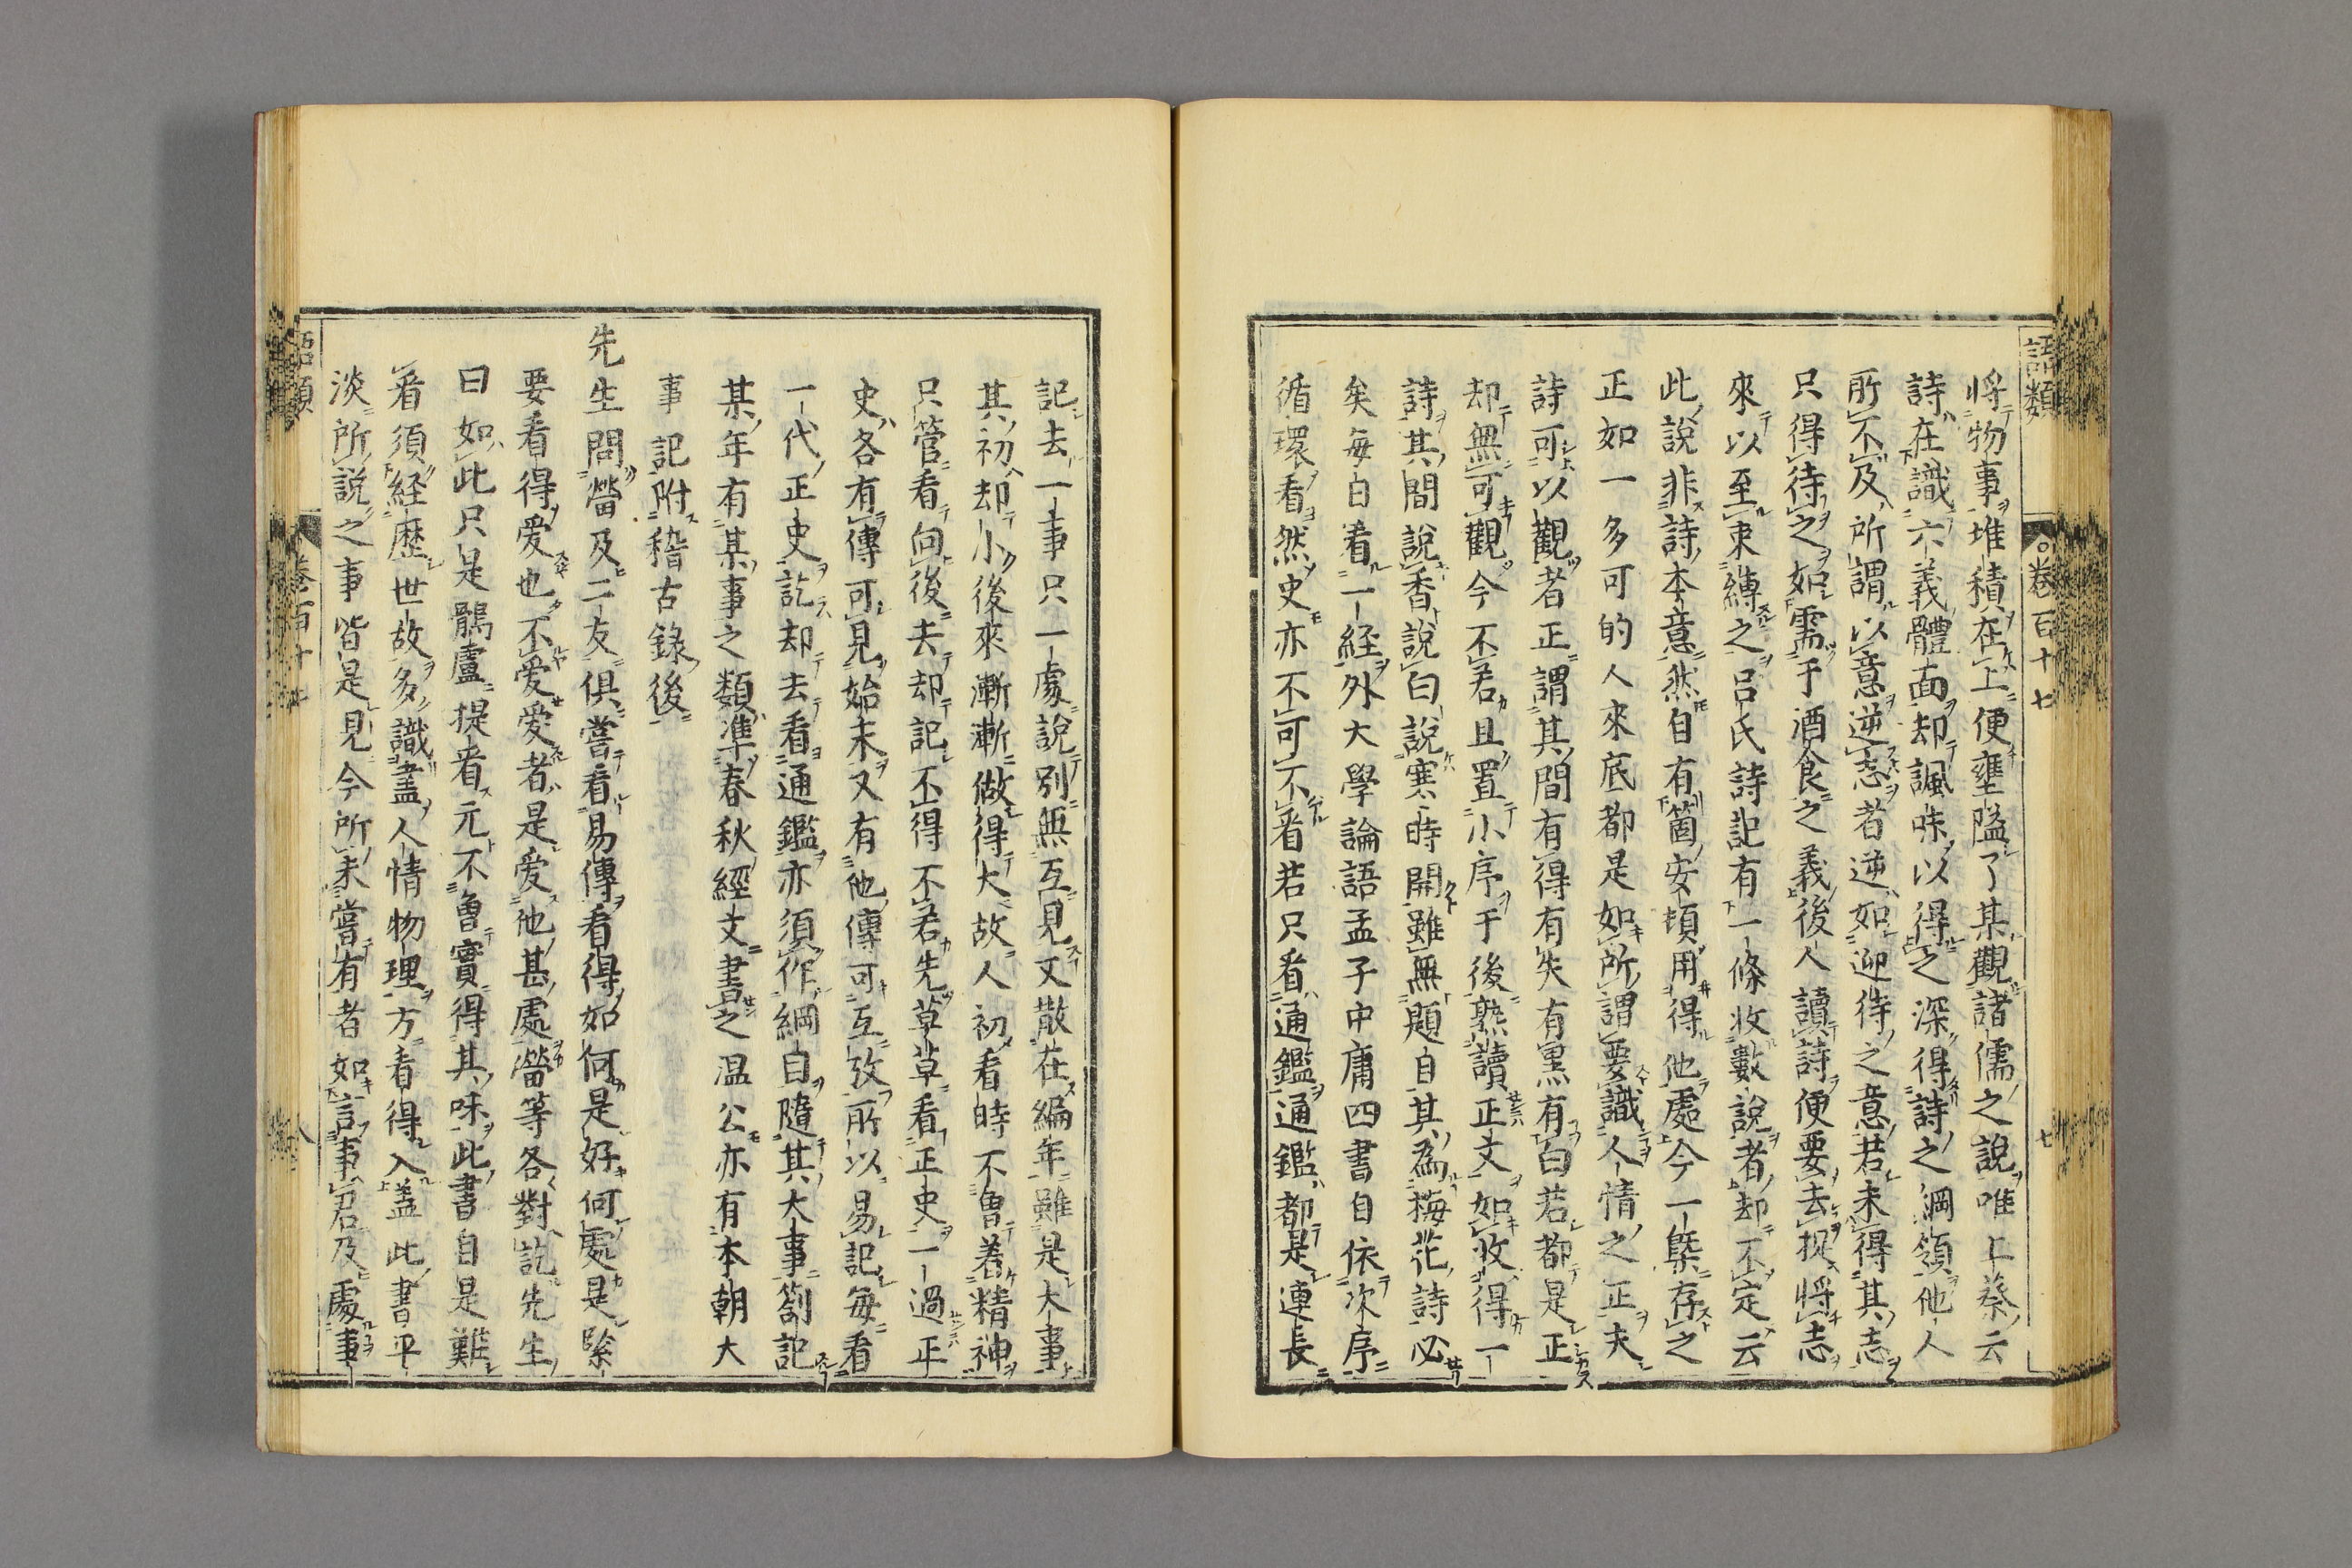 語類
卷百十七
七
将物事堆積在上便壅隘了某觀諸儒之說唯上蔡云
詩在識六義體面却諷味以得之深得詩之綱領他人
所不及所謂以意逆志者逆如迎待之意若未得其志
只得待之如需于酒食之義後人讀詩便要去捉将志
來以至束縛之呂氏詩記有一條收數說者却不定云
此說非詩本意然自有箇安頓用得他處今一槩存之
正如一多可的人來底都是如所謂要識人情之正夫
詩可以觀者正謂其間有得有失有黒有白若都是正
却無可觀今不若且置小序于後熟讀正文如收得一
詩其間說香說白說寒時開雖無題自其為梅花詩必
矣每日看一経外大學論語孟子中庸四書自依次序
循環看然史亦不可不看若只看通鑑通鑑都是連長
記去一事只一處說別無互見又散在編年雖是大事
其初却小後來漸漸做得大故人初看時不曽着精神
只管看向後去却記不得不若先草草看正史一過正
史各有傳可見始末又有他傳可互攷所以易記每看
一代正史訖却去看通鑑亦須作綱目隨其大事劄記
某年有某事之類準春秋經文書之温公亦有本朝大
事記附稽古錄後
先生問𤲟及二友俱嘗看易傳看得如何是好何處是緊
要看得爱也不爱爱者是爱他甚處𤲟等各對訖先生
曰如此只是鶻盧提看元不曽實得其味此書自是難
看須経歷世故多識盡人情物理方看得入盖此書平
淡所說之事皆是見今所未嘗有者如言事君及處事
語類
卷百十七
八